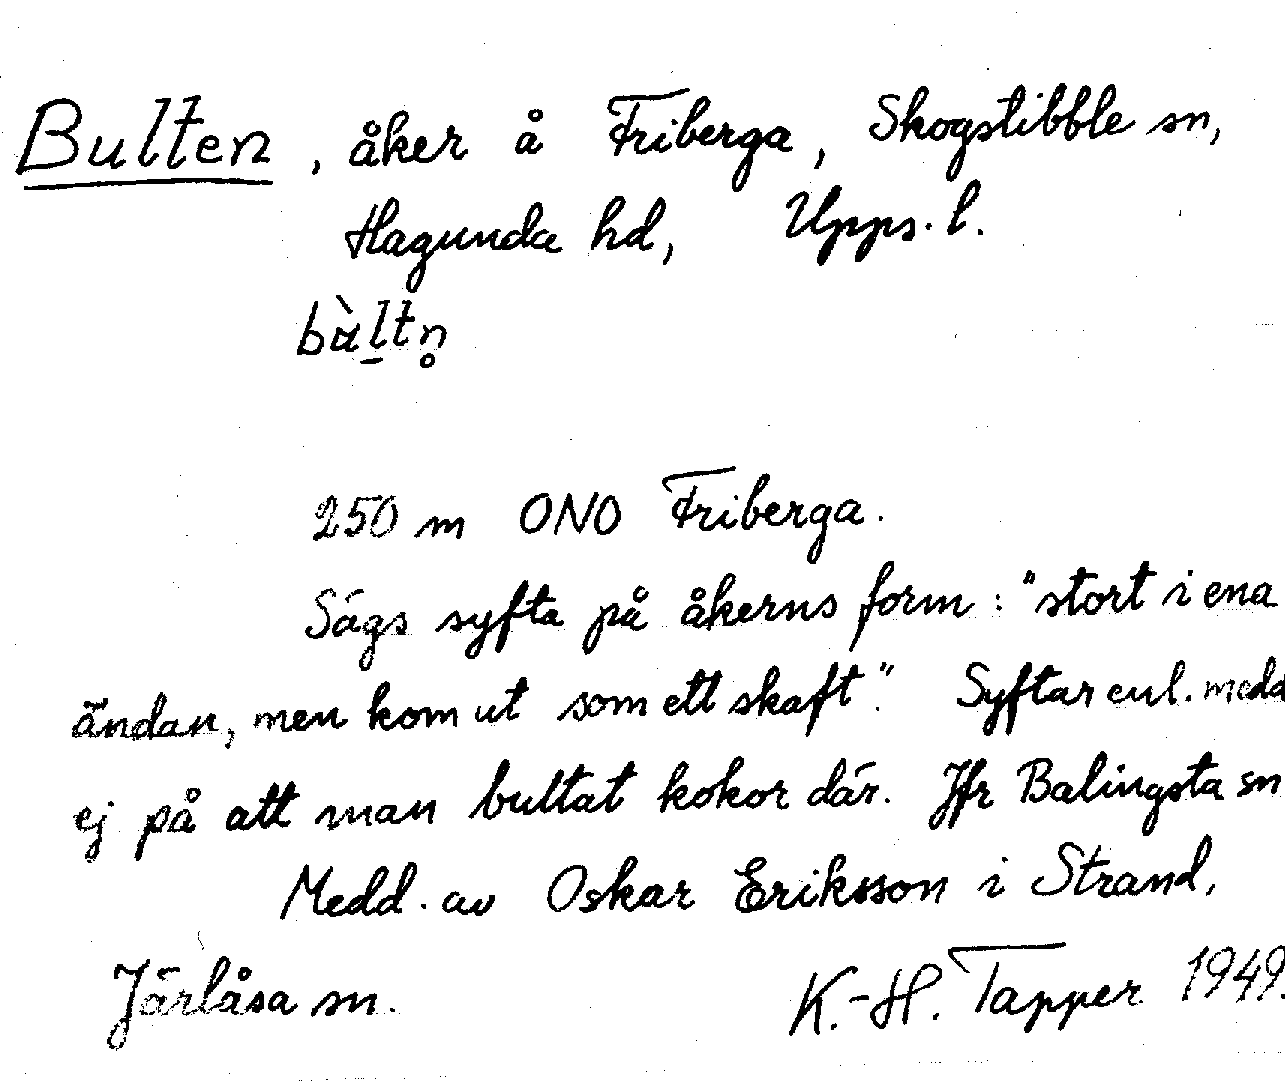 Bulten, åker å Friberga, Skogstibble sn,
Hagunda hd, Upps. l.
250 m ONO Friberga.
Sägs syfta på åkerns form: "stort i ena
ändan, men kom ut som ett skaft". Syftar enl. medd
ej på att man bultat kokor där. Jfr Balingsta sn
Medd. av Oskar Eriksson i Strand,
Järlåsa sn. K.-H. Tapper 1949.